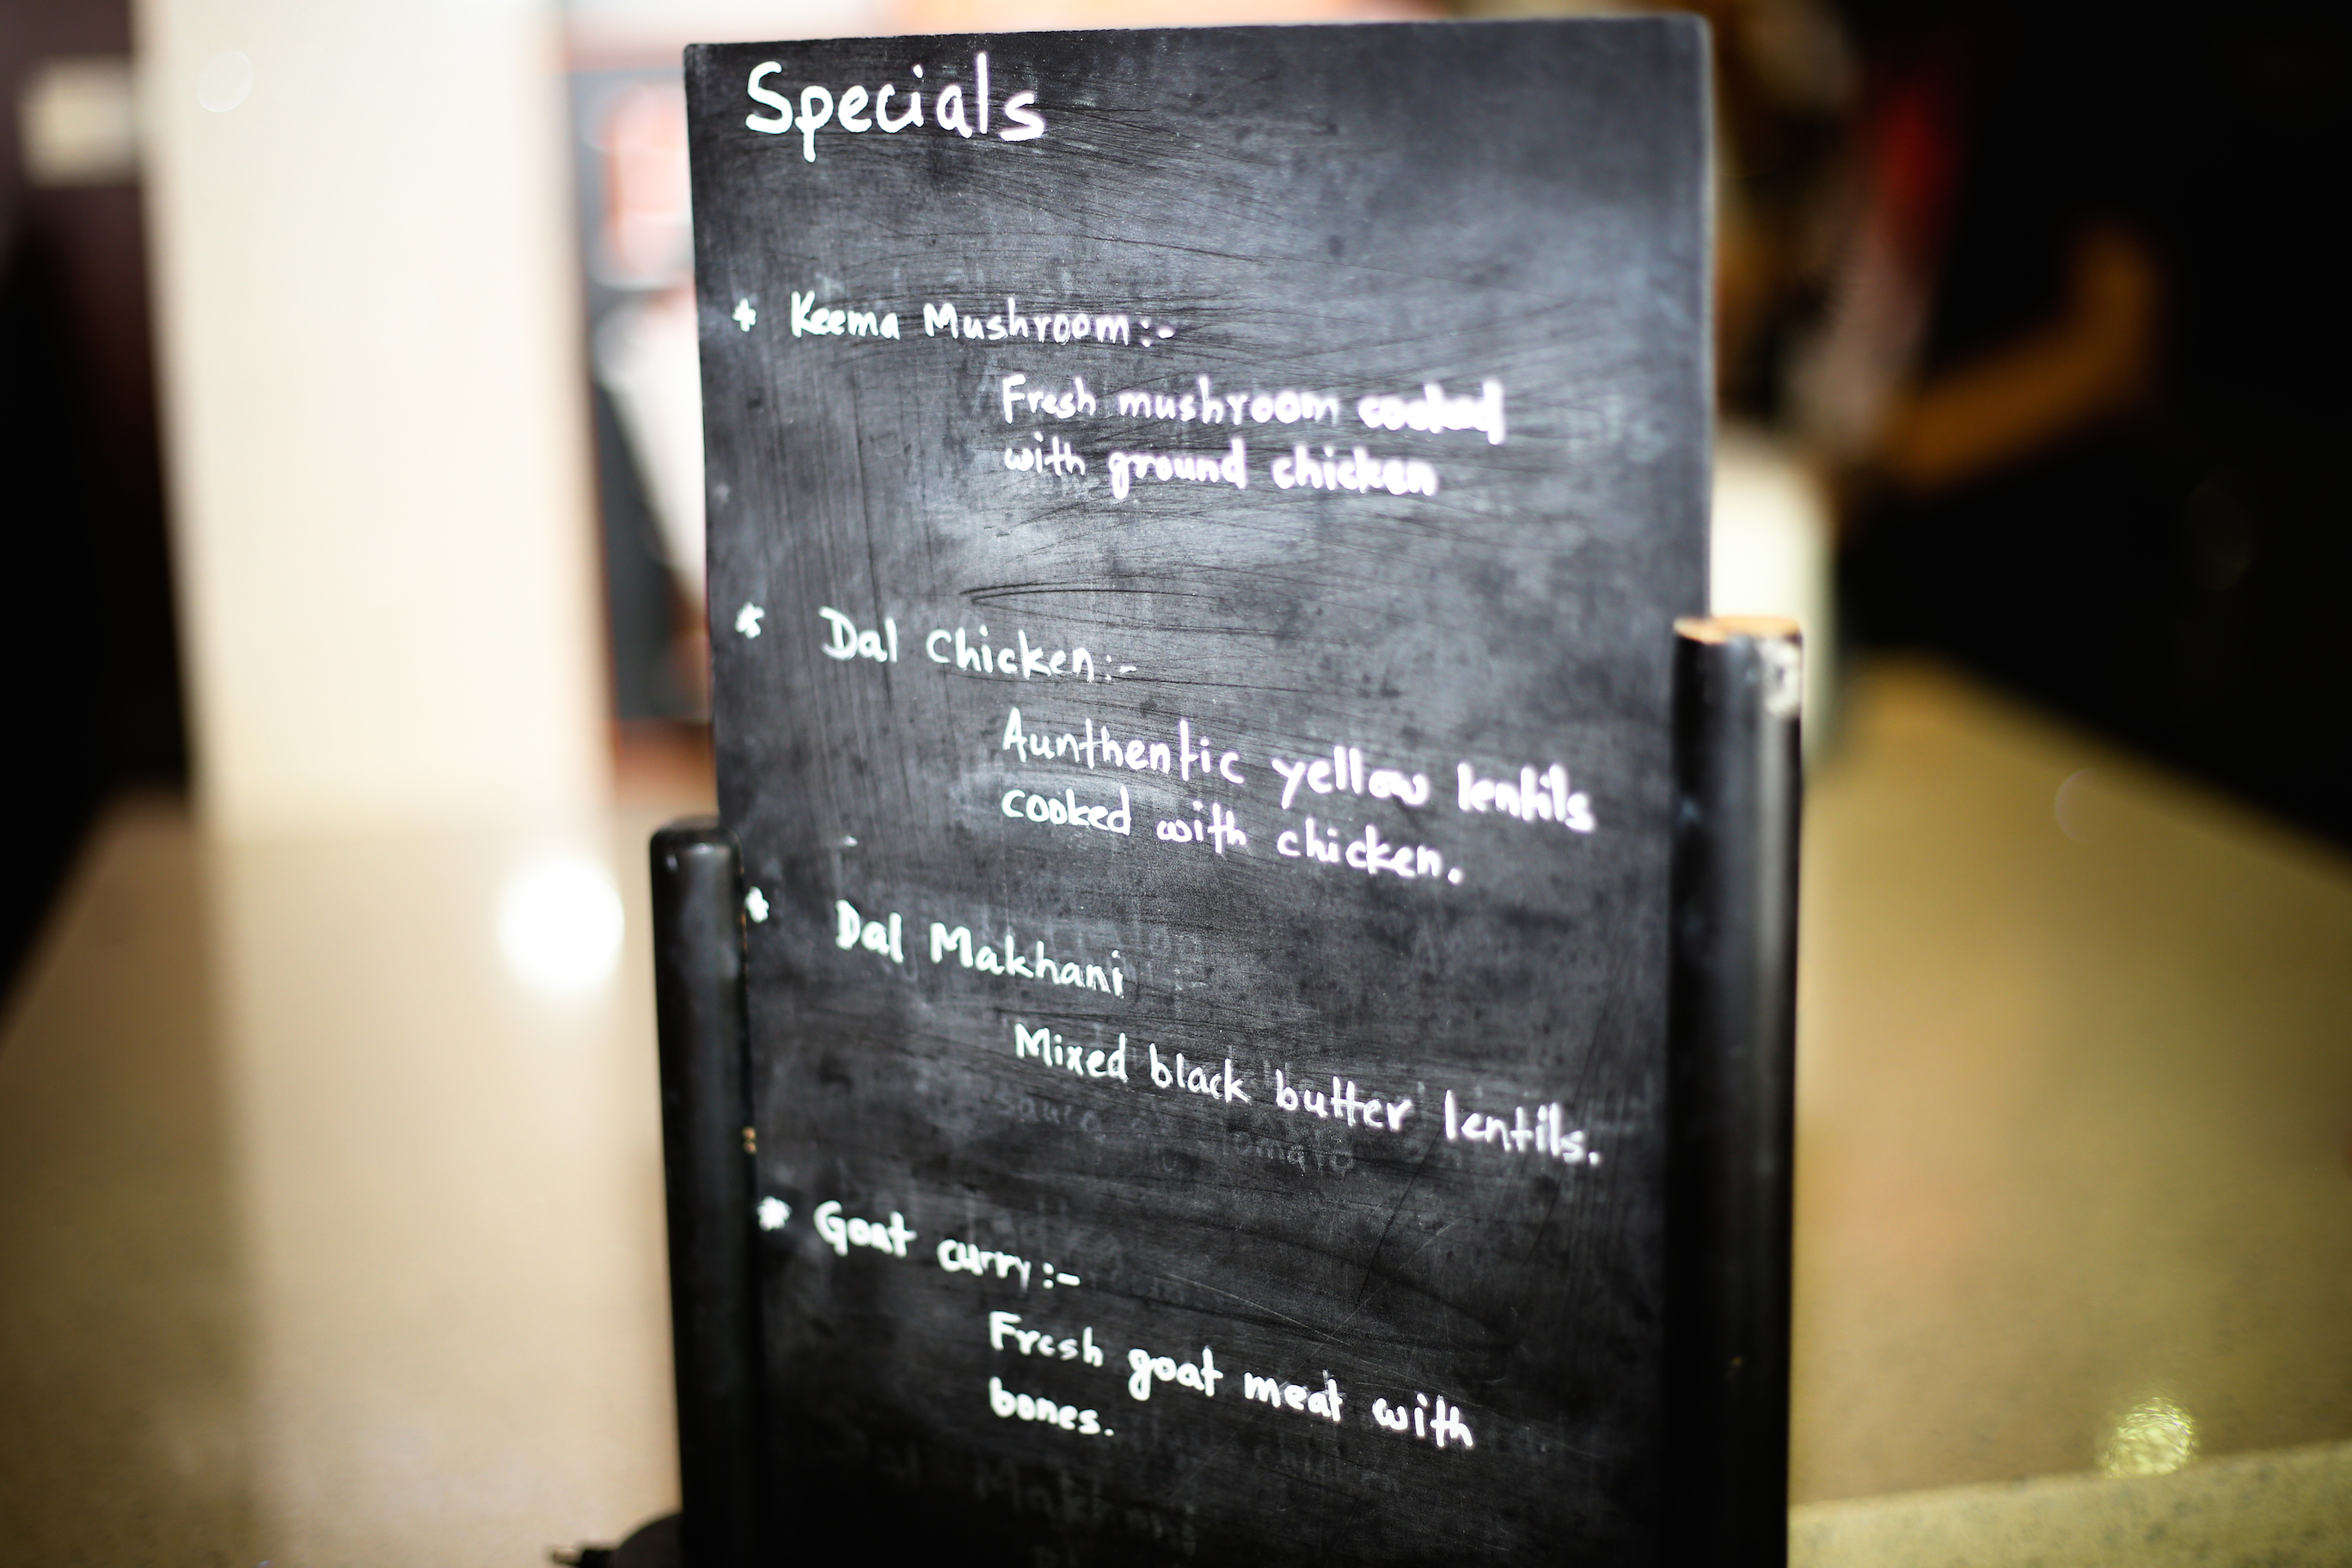 Specials
* Keema Mushroom:-
Fresh mushroom cooked
with ground chicken
* Dal Chicken:-
Aunthentic yellow lentils
cooked with chicken.
* Dal Makhani
Mixed black butter lentils.
* Goat curry:-
Fresh goat meat with
bones.